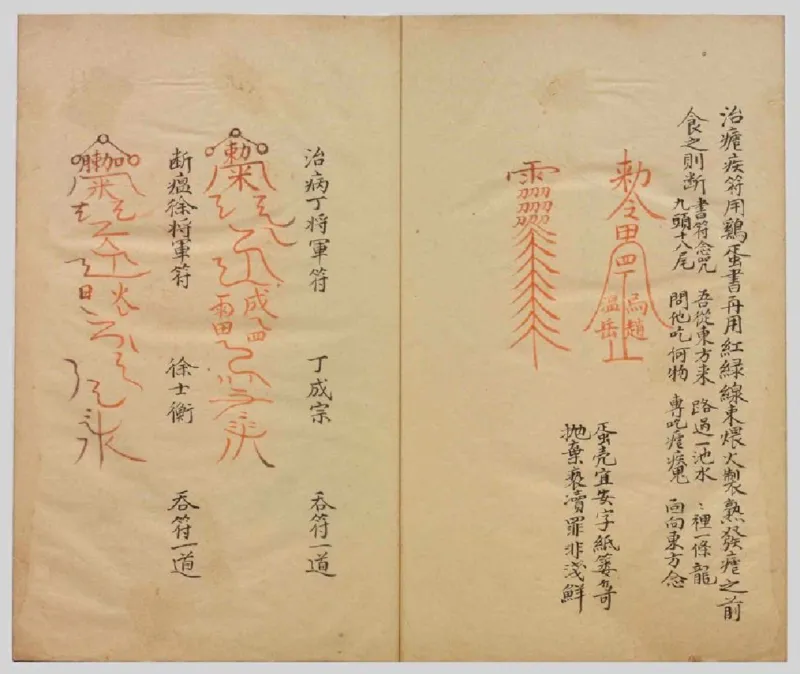 治瘧疾符用鷄蛋書再用紅緑線束煨火製熟發瘧之前
食之則断
書符念咒 吾從東方来 路過一池水 ：裡一條龍
九頭十八尾 問他吃何物 專吃瘧疾鬼 面向東方念
勅令
趙
温岳
蛋壳宜安字紙簍勿可
抛棄褻瀆罪非浅鮮
治病丁将軍符 丁成宗 吞符一道
勅
断瘟徐将軍符 徐士衡 吞符一道
勅